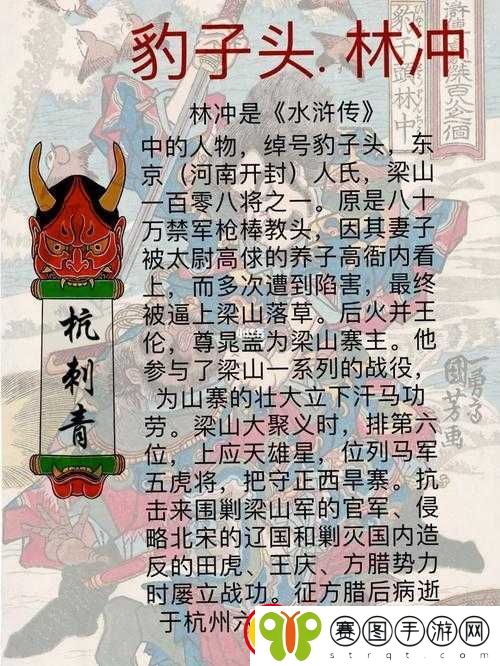 豹子头.林冲
林冲是《水浒传》
中的人物，绰号豹子头，东
京（河南开封）人氏，梁山
一百零八将之一。原是八十
万禁军枪棒教头，因其妻子
被太尉高俅的养子高衙内看
上，而多次遭到陷害，最终
被逼上梁山落草。后火并王
伦，尊晁盖为梁山寨主。他
参与了梁山一系列的战役，
为山寨的壮大立下汗马功
劳。梁山大聚义时，排第六
位，上应天雄星，位列马军
五虎将，把守正西旱寨。抗
击来围剿梁山军的官军、侵
略北宋的辽国和剿灭国内造
反的田虎、王庆、方腊势力
时屡立战功。征方腊后病逝
于杭州六
杭刺青
豹子頭林冲
一勇斎
國芳画
赛图手游网
strqt.com